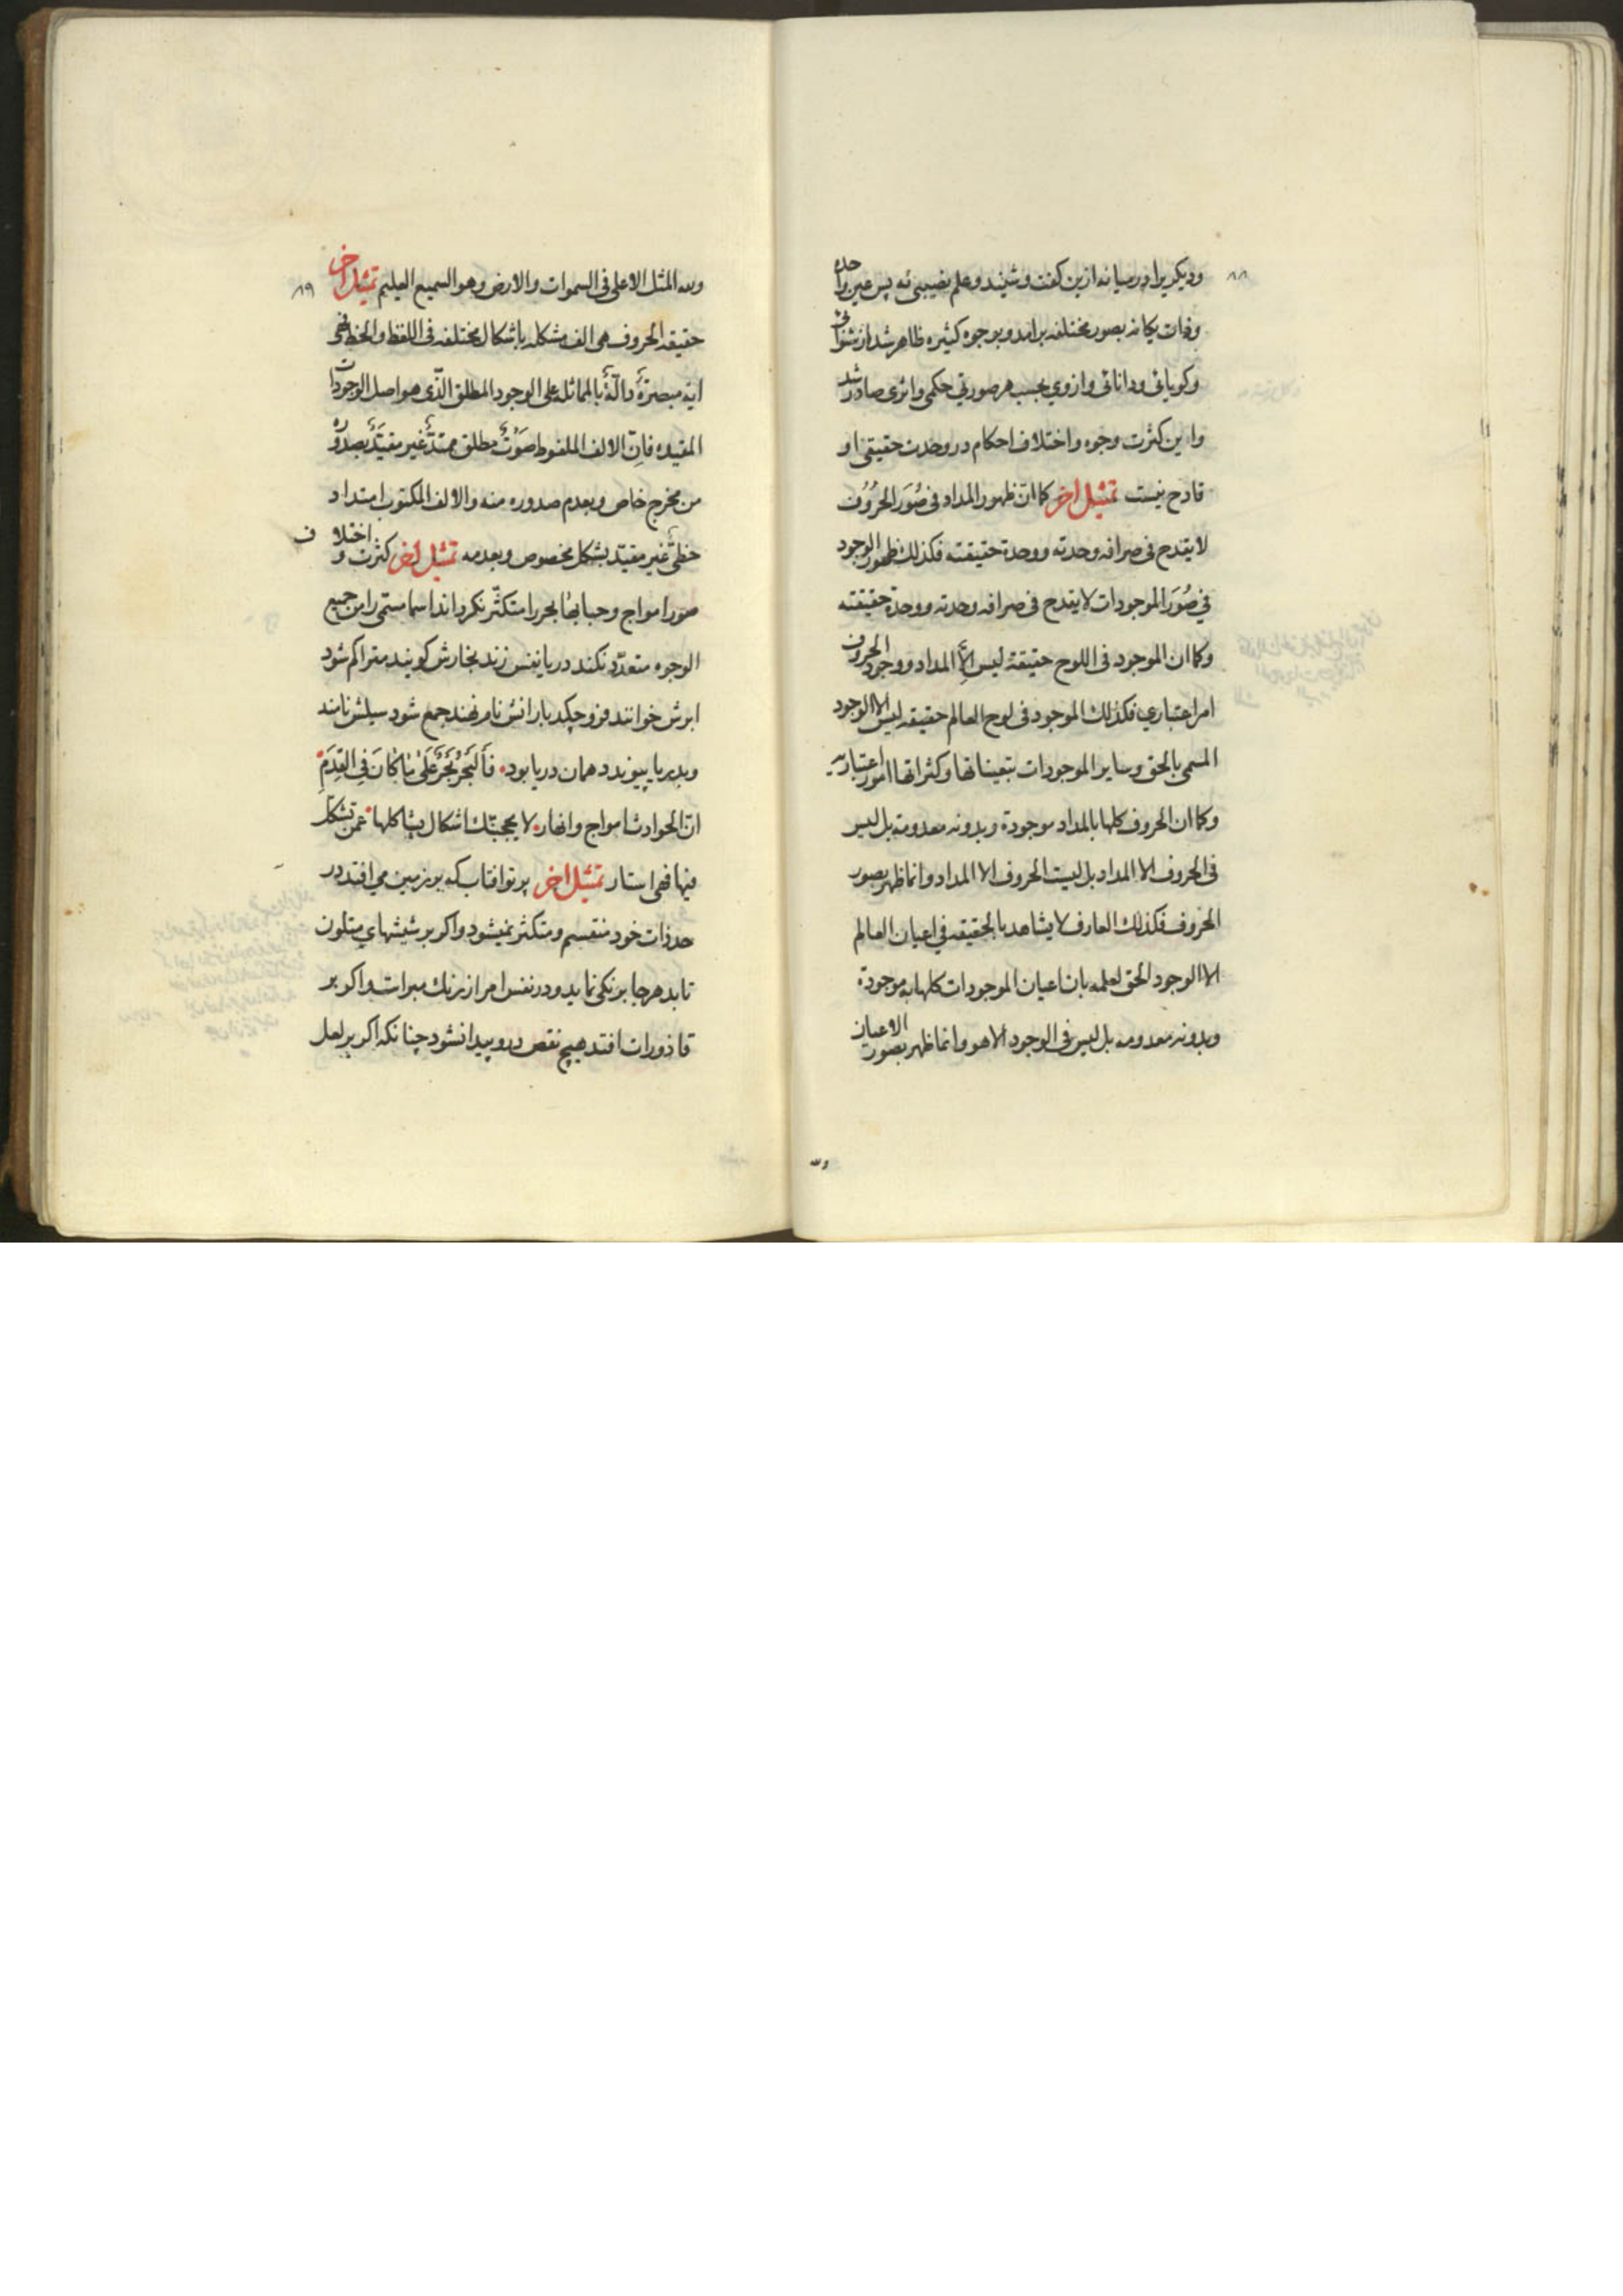 ۸۸
ودیکریرا درمیانه ازین کفت وشنید وعلم نصیبی نه پس عین واحده
وذات یکانه بصور مختلفه برامد وبوجوه کثیره ظاهر شد از شنوائی
وکویائی ودانائی وازوي بحسب هر صورتي حکمی واثری صادر شد
واین کثرت وجوه واختلاف احکام در وحدت حقیقی او
قادح نیست تمثیل اخر کما انّ ظهور المداد فی صُوَر الحُرُوُف
لا یقدح فی صرافه وحدته ووحدة حقیقته فکذلك ظهور الوجود
في صُوَر الموجودات لا یقدح فی صرافه وحدته ووحدة حقیقته
وکما ان الموجود فی اللوح حقیقة لیس الّا المداد ووجود الحروف
امر اعتباري فکذلك الموجود فی لوح العالم حقیقه لیس الا الوجود
المسمی بالحق وسایر الموجودات بتعیناتها وکثراتها امور اعتباریه
وکما ان الحروف کلها بالمداد موجودة وبدونه معدومة بل لیس
فی الحروف الا المداد بل لیست الحروف الا المداد وانما ظهر بصور
الحروف فکذلك العارف لا یشاهد بالحقیقه في اعیان العالم
الا الوجود الحق لعلمه بان اعیان الموجودات کلها به موجودة
وبدونه معدومه بل لیس فی الوجود الا هو وانما ظهر بصورت الاعیان
۸۹
ولله المثل الاعلی فی السموات والارض وهو السمیع العلیم تمثیل اخر
حقیقه الحروف هی الف مشکله باشکال مختلفه فی اللفظ والخط فهی
ایة مبصرَة دالّة بالمماثله علی الوجود المطلق الّذی هو اصل الوجودات
المقیده فانّ الالف الملفوظ صَوْت مطلق ممتدّ غیر مقیّد بصدوره
من مخرج خاص وبعدم صدوره منه والالف المکتوب امتداد
خطیّ غیر مقیّد بشکل مخصوص وبعدمه تمثیل اخر کثرت و اختلاف
صور امواج وحبابها بحر را متکثّر نکرداند اسما مسمّی را من جمیع
الوجوه متعدّد نکند دریا نفس زند بخارش کویند متراکم شود
ابرش خوانند فرو چکد بارانش نام نهند جمع شود سیلش نامند
وبدریا پیوندد همان دریا بود فَالبَحْرُ بَحْرٌ عَلَی مَا کَانَ فِی القِدَمِ
انّ الحوادث امواج وانهار لا یحجبنّك اشکال یشاکلها عمن تشکّل
فیها فهی استار تمثیل اخر پرتو افتاب که بر زمین می افتد در
حد ذات خود منقسم ومتکثر نمیشود واکر بر شیشهاي متلون
تابد هر جا برنکی نماید ودر نفس امر از رنك مبراست واکر بر
قاذورات افتد هیچ نقص درو پیدا نشود چنانکه اکر بر لعل